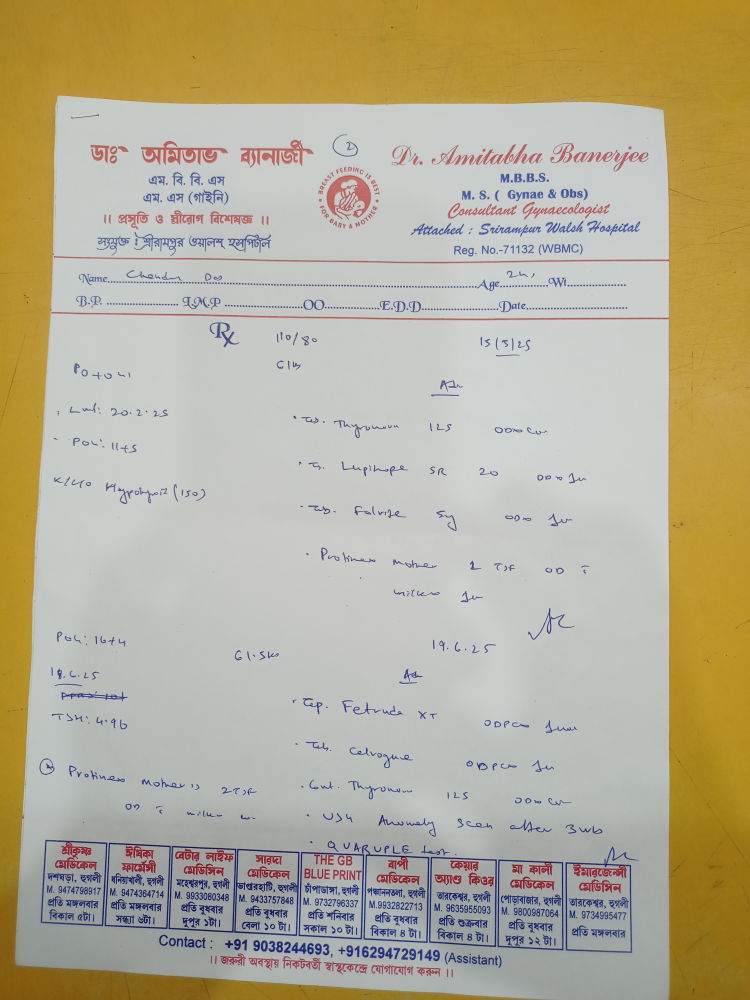 ডাঃ অমিতাভ ব্যানার্জী
এম. বি. বি. এস
এম. এস (গাইনি)
।। প্রসূতি ও স্ত্রীরোগ বিশেষজ্ঞ ।।
সংযুক্ত : শ্রীরামপুর ওয়ালশ্ হসপিটাল
2
BREAST FEEDING IS BEST
FOR BABY & MOTHER
Dr. Amitabha Banerjee
M.B.B.S.
M. S. ( Gynae & Obs)
Consultant Gynaecologist
Attached : Srirampur Walsh Hospital
Reg. No.-71132 (WBMC)
Name Das Age Wt
B.P. L.M.P OO E.D.D Date
Rx 110/80 15/5/25
Adv
LMP: 20.2.25
Tab. Thyronorm 125
POG: 11+5
SR 20
K/C/O (150)
Tab. 5mg
Protinex mother 2 TSF OD
milk
POG: 16+4
61.5kg
19.6.25
Adv
TSH: 4.96
Cap. XT
Tab.
Protinex mother 2TSF
OD milk
Cont. Thyronorm 125
USG Anomaly Scan after 3wk
QUADRUPLE test.
শ্রীকৃষ্ণ মেডিকেল
দশঘড়া, হুগলী
M. 9474798917
প্রতি মঙ্গলবার
বিকাল ৫টা।
ঈষিকা ফার্মেসী
ধনিয়াখালী, হুগলী
M. 9474364714
প্রতি মঙ্গলবার
সন্ধ্যা ৬টা।
বেটার লাইফ মেডিসিন
মহেশ্বরপুর, হুগলী
M. 9933080348
প্রতি বুধবার
দুপুর ১টা।
সারদা মেডিকেল
ভাণ্ডারহাটি, হুগলী
M. 9433757848
প্রতি বুধবার
বেলা ১০ টা।
THE GB BLUE PRINT
চাঁপাডাঙ্গা, হুগলী
M. 9732796337
প্রতি শনিবার
সকাল ১০ টা।
বাপী মেডিকেল
পঞ্চাননতলা, হুগলী
M.9932822713
প্রতি বুধবার
বিকাল ৪ টা।
কেয়ার অ্যাণ্ড কিওর
তারকেশ্বর, হুগলী
M. 9635955093
প্রতি শুক্রবার
বিকাল ৪ টা।
মা কালী মেডিকেল
পোড়াবাজার, হুগলী
M. 9800987064
প্রতি বুধবার
দুপুর ১২ টা।
ইমারজেন্সী মেডিসিন
তারকেশ্বর, হুগলী
M. 9734995477
প্রতি মঙ্গলবার
Contact : +91 9038244693, +916294729149 (Assistant)
।। জরুরী অবস্থায় নিকটবর্তী স্বাস্থ্যকেন্দ্রে যোগাযোগ করুন ।।